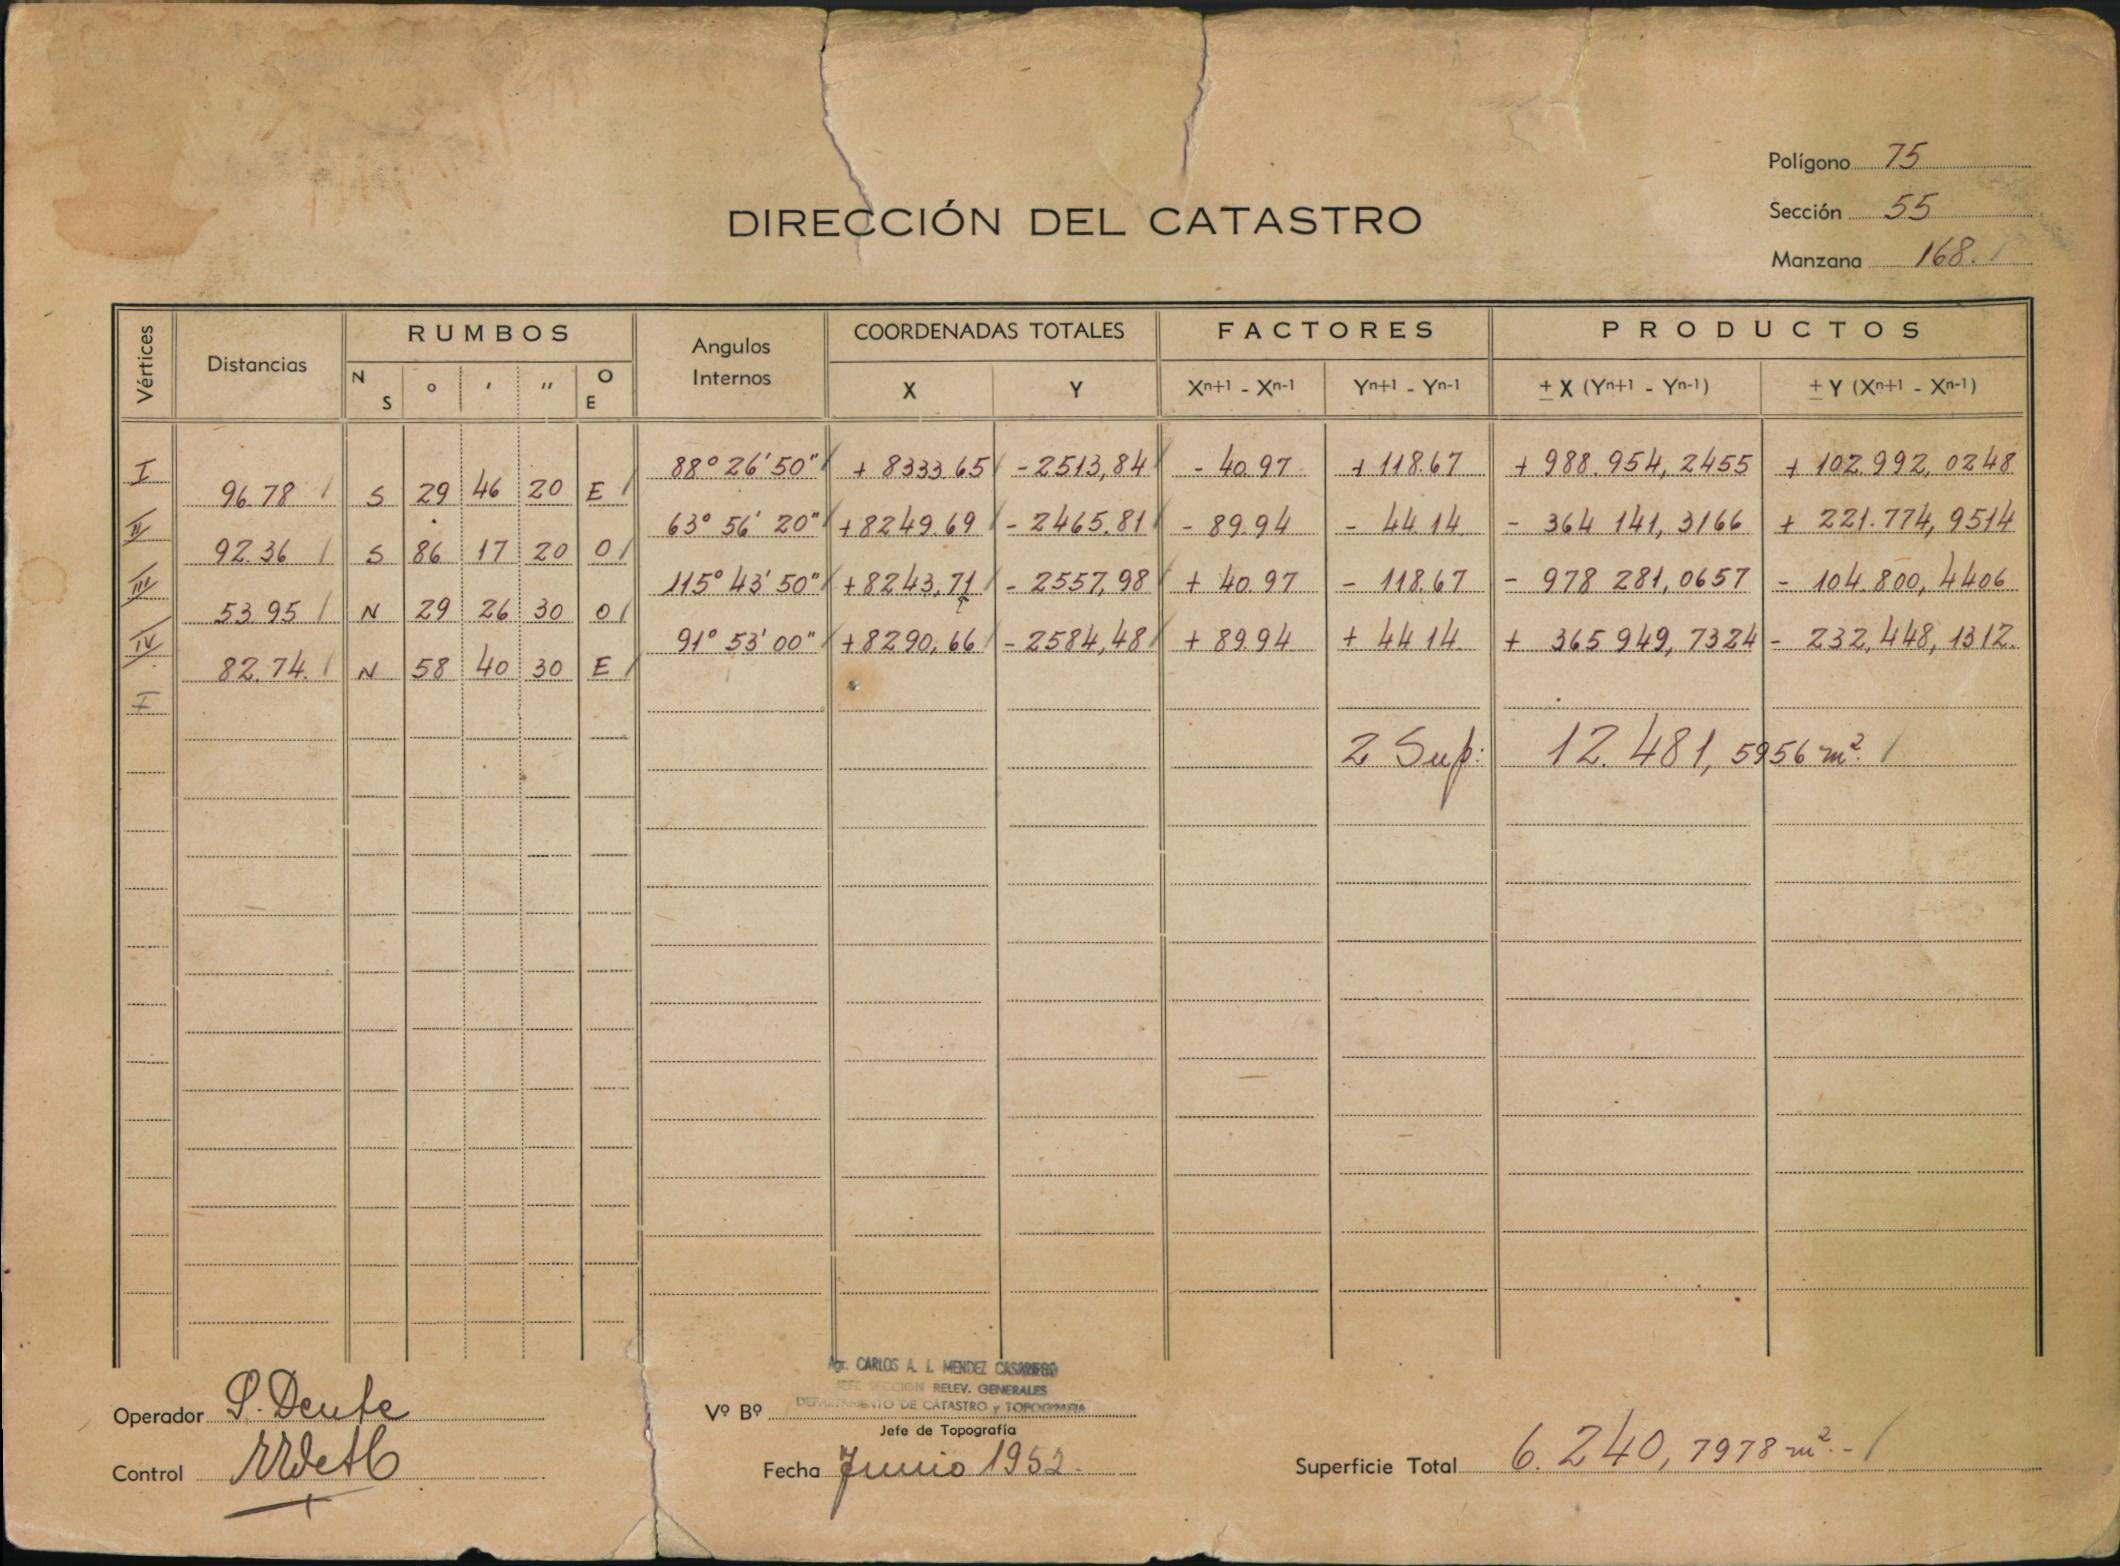 Polígono 75
Sección 55
Manzana 168.
DIRECCIÓN DEL CATASTRO
Vértices Distancias RUMBOS Angulos Internos COORDENADAS TOTALES FACTORES PRODUCTOS
N S ° ' " O E X Y Xn+1 - Xn-1 Yn+1 - Yn-1 ± X (Yn+1 - Yn-1) ± Y (Xn+1 - Xn-1)
I 88° 26' 50" + 8333.65 - 2513,84 - 40.97 + 118.67 + 988.954,2455 + 102.992,0248
96.78 S 29 46 20 E
II 63° 56' 20" + 8249.69 - 2465.81 - 89.94 - 44.14 - 364 141,3166 + 221.774,9514
92.36 S 86 17 20 O
III 115° 43' 50" + 8243,71 - 2557,98 + 40.97 - 118.67 - 978 281,0657 - 104.800,4406
53.95 N 29 26 30 O
IV 91° 53' 00" + 8290,66 - 2584,48 + 89.94 + 44 14 + 365 949,7324 - 232,448,1312.
82.74. N 58 40 30 E
I
2 Sup: 12.481,5956 m².
Agr. CARLOS A. L. MENDEZ CASARIEGO
JEFE SECCION RELEV. GENERALES
DEPARTAMENTO DE CATASTRO y TOPOGRAFIA
Operador S. Deute
Vº Bº
Jefe de Topografía
Control
Fecha Junio 1952.
Superficie Total 6.240,7978 m².-